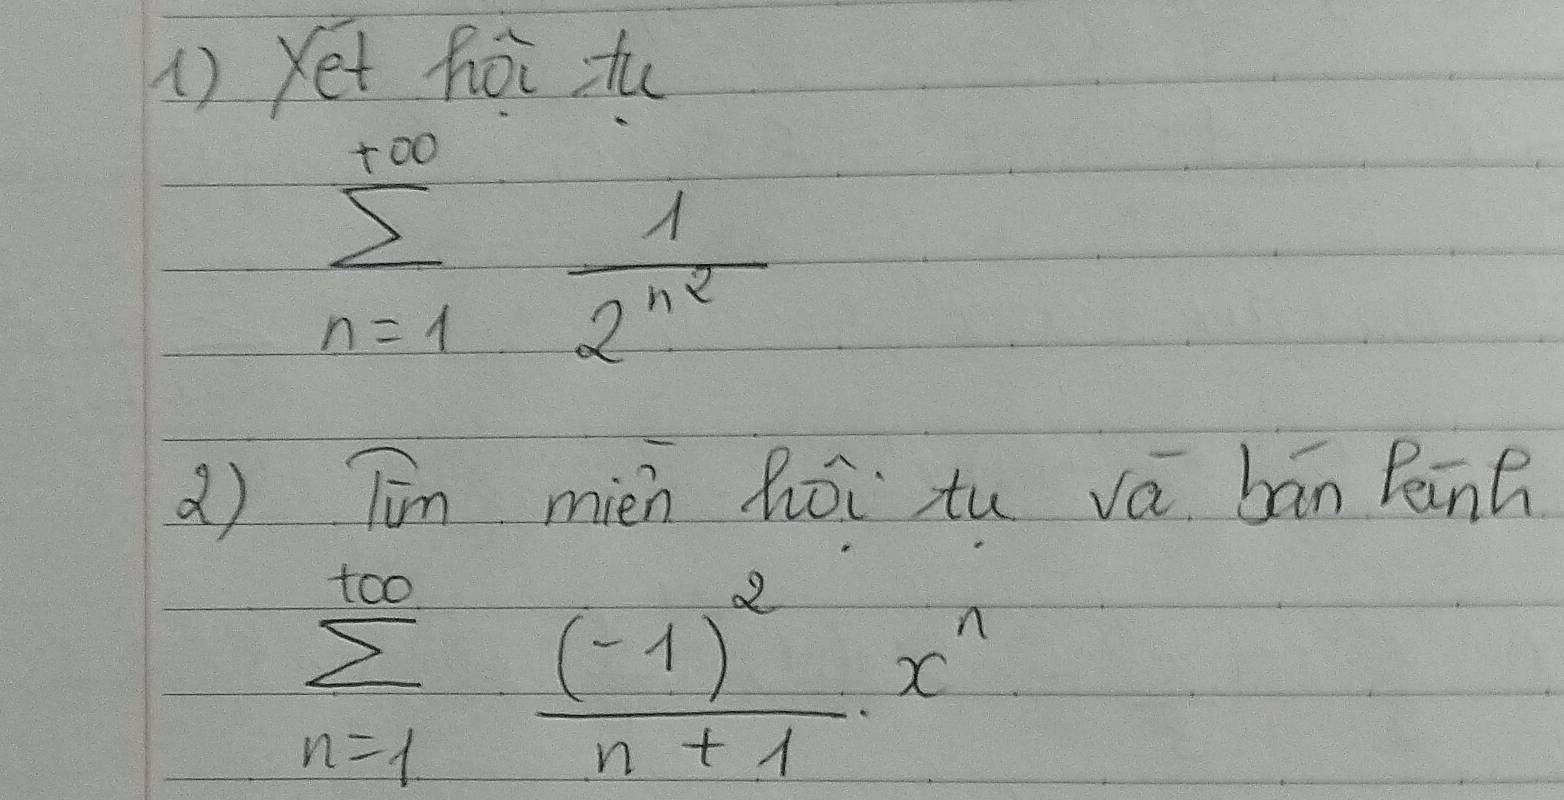 1) Xét hội tụ
+∞
∑ 1/2^{n^2}
n=1
2) Tìm miền hội tụ và bán kính
+∞
∑ (-1)^2/(n+1) . x^n
n=1